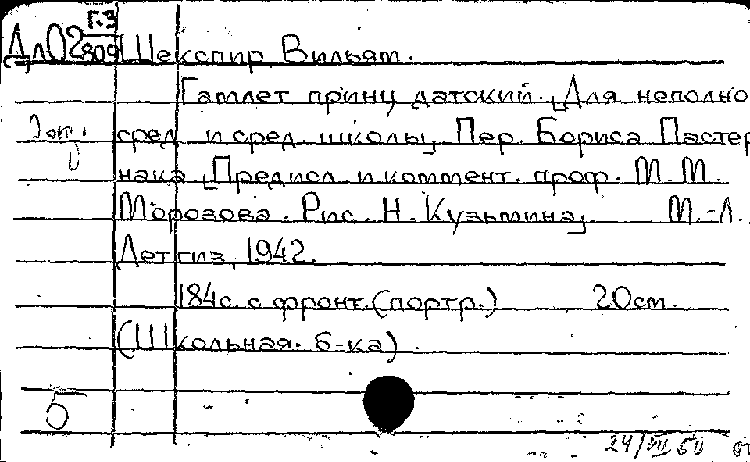 Г.3
Дл02 809 Шекспир, Вильям.
Гамлет принц датский. [Для неполно
сред. и сред. школы]. Пер. Бориса Пастер
нака [Предисл. и коммент. проф. М. М.
Морозова. Рис. Н. Кузьмина]. М.-Л.
Детгиз, 1942.
184с. с фронт. (портр.) 20см.
(Школьная б-ка)
5
24/VII 50